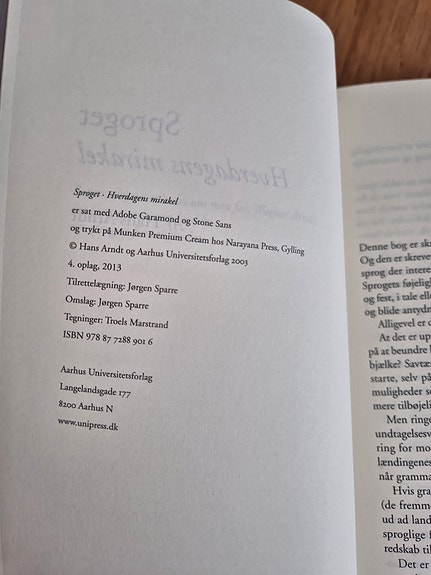 Sproget
Hverdagens mirakel
Sproget · Hverdagens mirakel
er sat med Adobe Garamond og Stone Sans
og trykt på Munken Premium Cream hos Narayana Press, Gylling
© Hans Arndt og Aarhus Universitetsforlag 2003
4. oplag, 2013
Tilrettelægning: Jørgen Sparre
Omslag: Jørgen Sparre
Tegninger: Troels Marstrand
ISBN 978 87 7288 901 6
Aarhus Universitetsforlag
Langelandsgade 177
8200 Aarhus N
www.unipress.dk
Denne bog er sk
Og den er skreve
sprog der interes
Sprogets føjelig
og fest, i tale elle
og blide antydn
Alligevel er d
At det er up
på at beundre l
bjælke? Savtæ
starte, selv på
muligheder s
mere tilbøjeli
Men ringe
undtagelsesv
ring for mo
lændingenes
når gramma
Hvis gra
(de fremm
ud ad land
sproglige f
redskab til
Det er